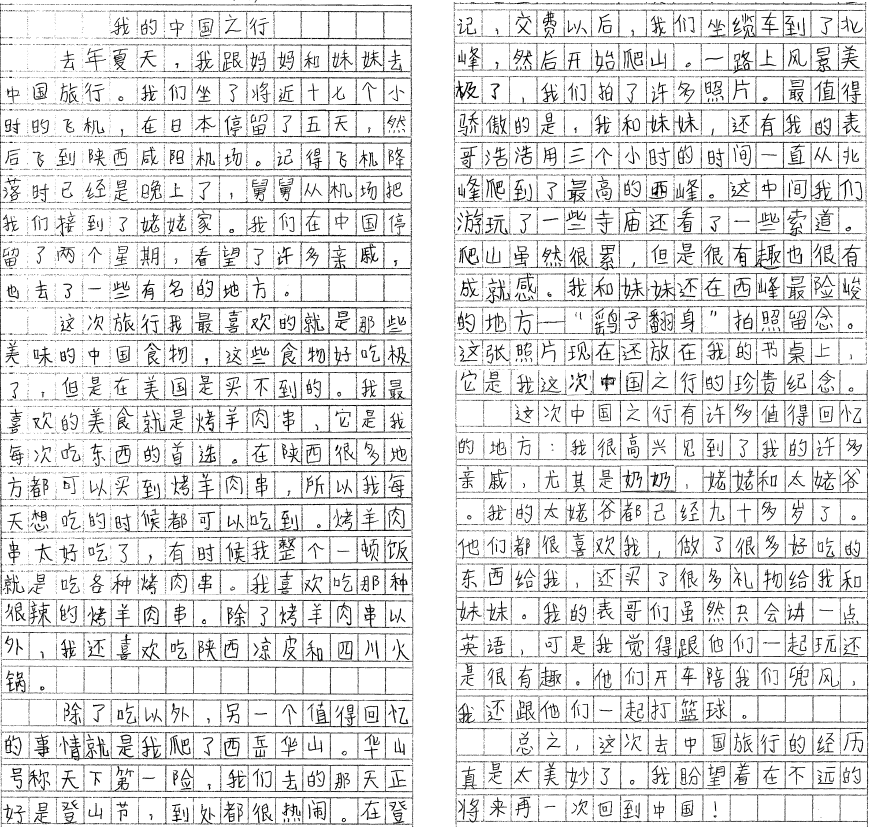 我的中国之行
去年夏天，我跟妈妈和妹妹去
中国旅行。我们坐了将近十七个小
时的飞机，在日本停留了五天，然
后飞到陕西咸阳机场。记得飞机降
落时已经是晚上了，舅舅从机场把
我们接到了姥姥家。我们在中国停
留了两个星期，看望了许多亲戚，
也去了一些有名的地方。
这次旅行我最喜欢的就是那些
美味的中国食物，这些食物好吃极
了，但是在美国是买不到的。我最
喜欢的美食就是烤羊肉串，它是我
每次吃东西的首选。在陕西很多地
方都可以买到烤羊肉串，所以我每
天想吃的时候都可以吃到。烤羊肉
串太好吃了，有时候我整个一顿饭
就是吃各种烤肉串。我喜欢吃那种
很辣的烤羊肉串。除了烤羊肉串以
外，我还喜欢吃陕西凉皮和四川火
锅。
除了吃以外，另一个值得回忆
的事情就是我爬了西岳华山。华山
号称天下第一险，我们去的那天正
好是登山节，到处都很热闹。在登
记，交费以后，我们坐缆车到了北
峰，然后开始爬山。一路上风景美
极了，我们拍了许多照片。最值得
骄傲的是，我和妹妹，还有我的表
哥浩浩用三个小时的时间一直从北
峰爬到了最高的西峰。这中间我们
游玩了一些寺庙还看了一些索道。
爬山虽然很累，但是很有趣也很有
成就感。我和妹妹还在西峰最险峻
的地方—“鹞子翻身”拍照留念。
这张照片现在还放在我的书桌上，
它是我这次中国之行的珍贵纪念。
这次中国之行有许多值得回忆
的地方：我很高兴见到了我的许多
亲戚，尤其是奶奶，姥姥和太姥爷
。我的太姥爷都已经九十多岁了。
他们都很喜欢我，做了很多好吃的
东西给我，还买了很多礼物给我和
妹妹。我的表哥们虽然只会讲一点
英语，可是我觉得跟他们一起玩还
是很有趣。他们开车陪我们兜风，
我还跟他们一起打篮球。
总之，这次去中国旅行的经历
真是太美妙了。我盼望着在不远的
将来再一次回到中国！